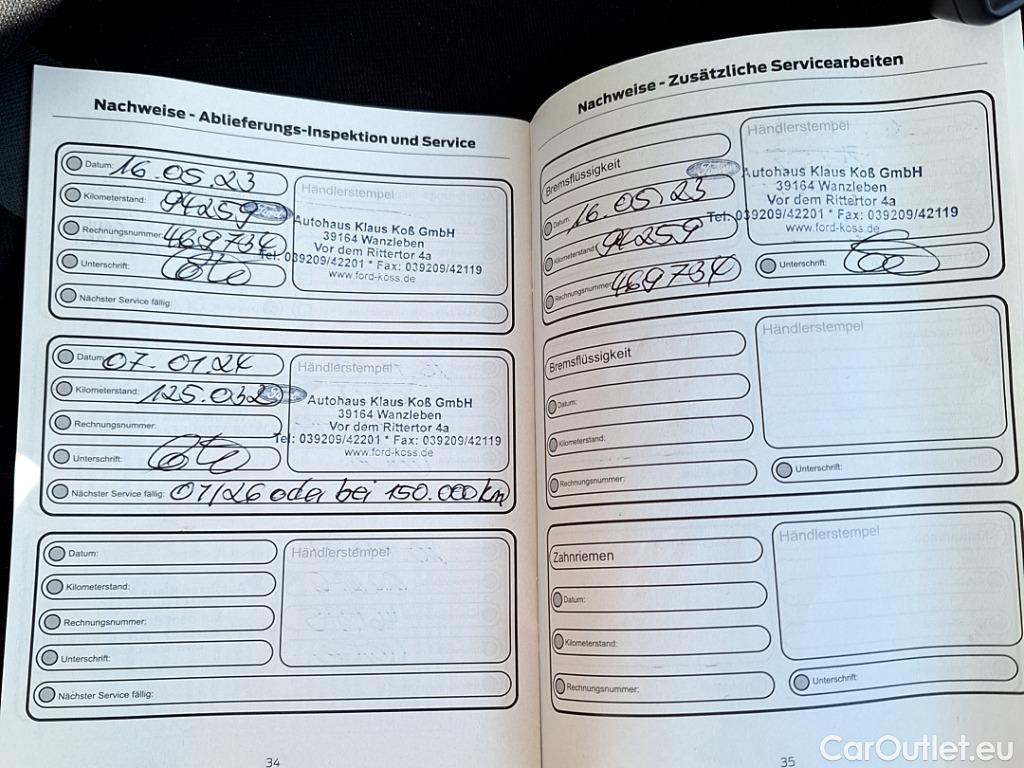 Nachweise - Ablieferungs-Inspektion und Service
Datum: 16.05.23
Kilometerstand: 94259
Rechnungsnummer: 469734
Unterschrift:
Nächster Service fällig:
Händlerstempel
Autohaus Klaus Koß GmbH
39164 Wanzleben
Vor dem Rittertor 4a
Tel: 039209/42201 * Fax: 039209/42119
www.ford-koss.de
Datum: 07.01.24
Kilometerstand: 125.032
Rechnungsnummer:
Unterschrift:
Nächster Service fällig: 07/26 oder bei 150.000 km
Händlerstempel
Autohaus Klaus Koß GmbH
39164 Wanzleben
Vor dem Rittertor 4a
Tel: 039209/42201 * Fax: 039209/42119
www.ford-koss.de
Datum:
Kilometerstand:
Rechnungsnummer:
Unterschrift:
Nächster Service fällig:
Händlerstempel
34
Nachweise - Zusätzliche Servicearbeiten
Bremsflüssigkeit
Datum: 16.05.23
Kilometerstand: 94259
Rechnungsnummer: 469734
Händlerstempel
Autohaus Klaus Koß GmbH
39164 Wanzleben
Vor dem Rittertor 4a
Tel: 039209/42201 * Fax: 039209/42119
www.ford-koss.de
Unterschrift:
Bremsflüssigkeit
Datum:
Kilometerstand:
Rechnungsnummer:
Händlerstempel
Unterschrift:
Zahnriemen
Datum:
Kilometerstand:
Rechnungsnummer:
Händlerstempel
Unterschrift:
35
CarOutlet.eu